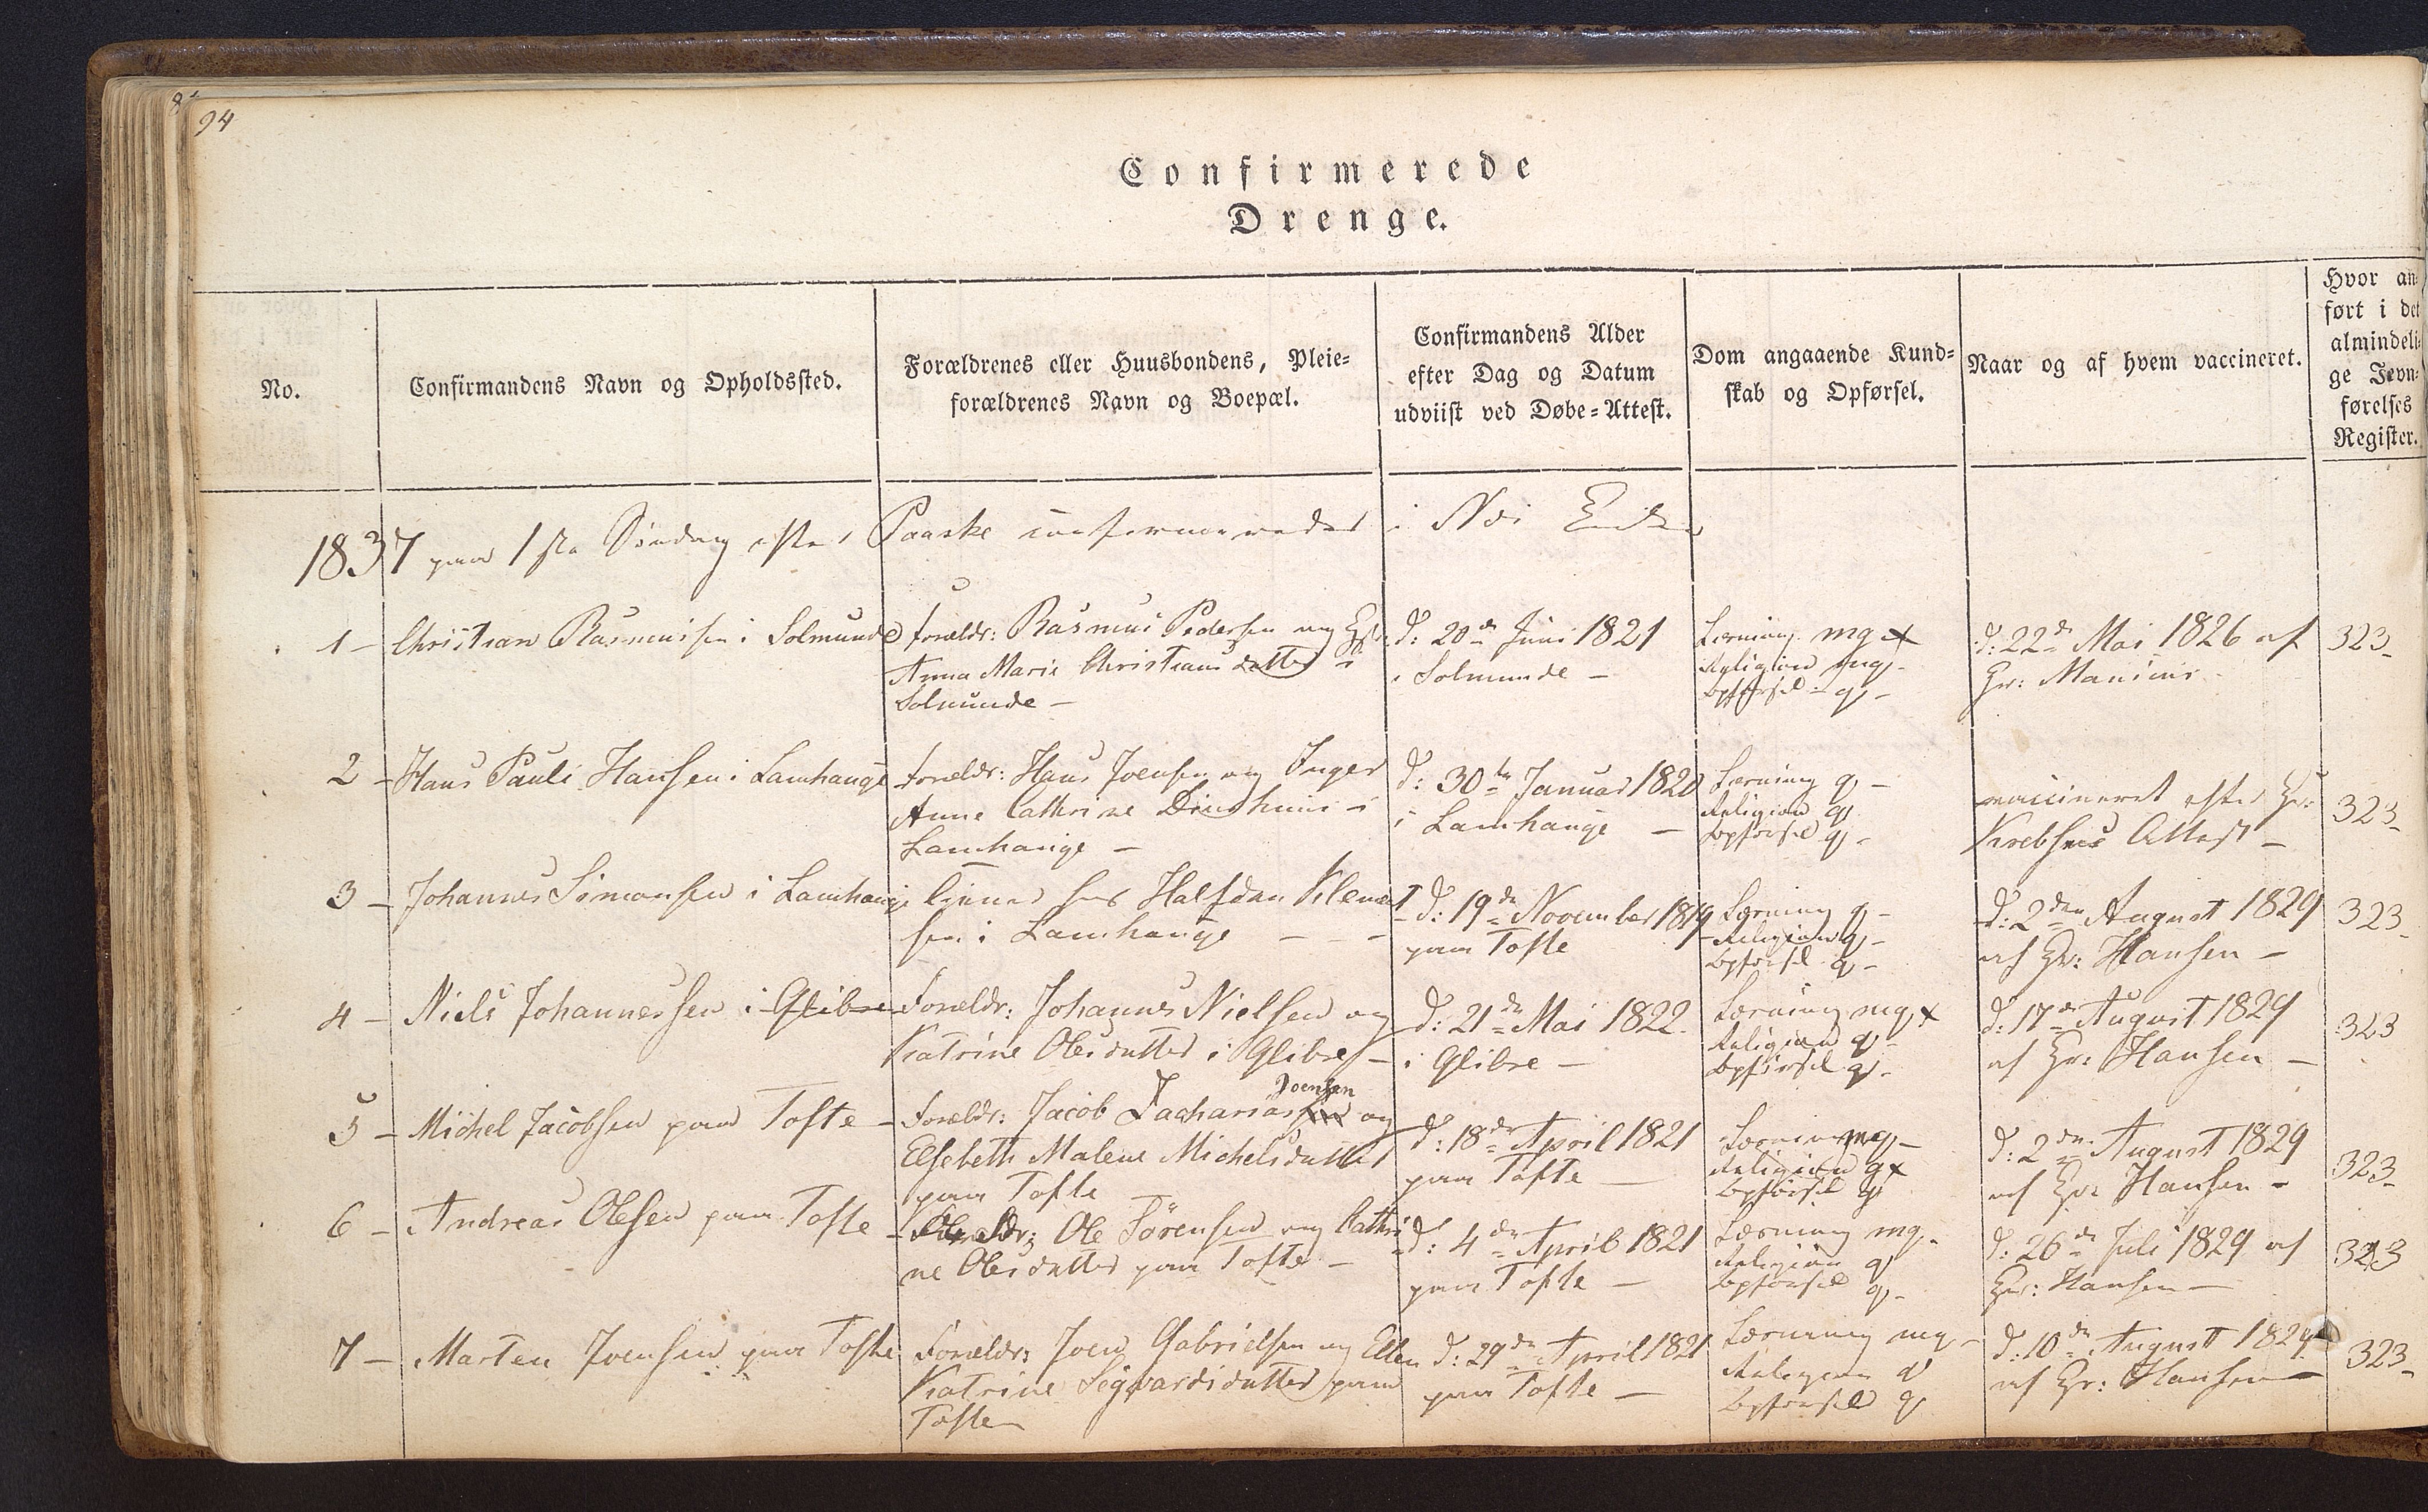 94
Confirmerede
Drenge.
No.
Confirmandens Navn og Opholdssted.
Forældrenes eller Huusbondens, Pleie-
forældrenes Navn og Boepæl.
Confirmandens Alder
efter Dag og Datum
udviist ved Døbe-Attest.
Dom angaaende Kund-
skab og Opførsel.
Naar og af hvem vaccineret.
Hvor an-
ført i det
almindeli-
ge Jevn-
førelses
Register.
1837 paa 1ste Søndag efter Paaske confirmeredes i
1 - Christian Rasmussen i Solmunde
forældr: Rasmus Pedersen og
Anna Marie Christiansdatter i
Solmunde -
d: 20de Juni 1821
i Solmunde -
Lærning mg x
Religion mg -
Opførsel - g -
d: 22de Mai 1826 af
Hr: Manicus
323 -
2 - Hans Pauli Hansen i Lamhauge
forældr: Hans Joensen og Inger
Anne Cathrine i
Lamhauge -
d: 30te Januar 1820
i Lamhauge -
Lærning g -
Religion g
Opførsel g -
vaccineret efter Hr:
Attest -
323 -
3 - Johannes Simonsen i Lamhauge
tiener hos Halfdan Klemet
sen i Lamhauge - - -
d: 19de November 1819
paa Tofte
Lærning g -
Religion g -
Opførsel g -
d: 2den August 1829
af Hr: Hansen -
323 -
4 - Niels Johannessen i Glibre
Forældr: Johannes Nielsen og
Katrine Olesdatter i Glibre -
d: 21de Mai 1822.
i Glibre -
Lærning mg x
Religion g -
Opførsel g -
d: 17de August 1829
af Hr: Hansen -
323
5 - Michel Jacobsen paa Tofte -
Joensen
Forældr: Jacob Zachariassen og
Elsebeth Malene Michelsdatter
paa Tofte
d: 18de April 1821
paa Tofte -
Lærning mg -
Religion g x
Opførsel g
d: 2den August 1829
af Hr: Hansen -
323 -
6 - Andreas Olesen paa Tofte -
Ole Sørensen og Cathri
ne Olesdatter paa Tofte -
d: 4de April 1821
paa Tofte -
Lærning mg -
Religion g
Opførsel g -
d: 26de Juli 1829 af
Hr: Hansen -
323
7 - Marten Joensen paa Tofte
Forældr: Joen Gabrielsen og Ellen
Katrine Segvardsdatter paa
Tofte
d: 29de April 1821
paa Tofte -
Lærning mg -
Religion g
Opførsel g
d: 10de August 1829
af Hr: Hansen -
323 -